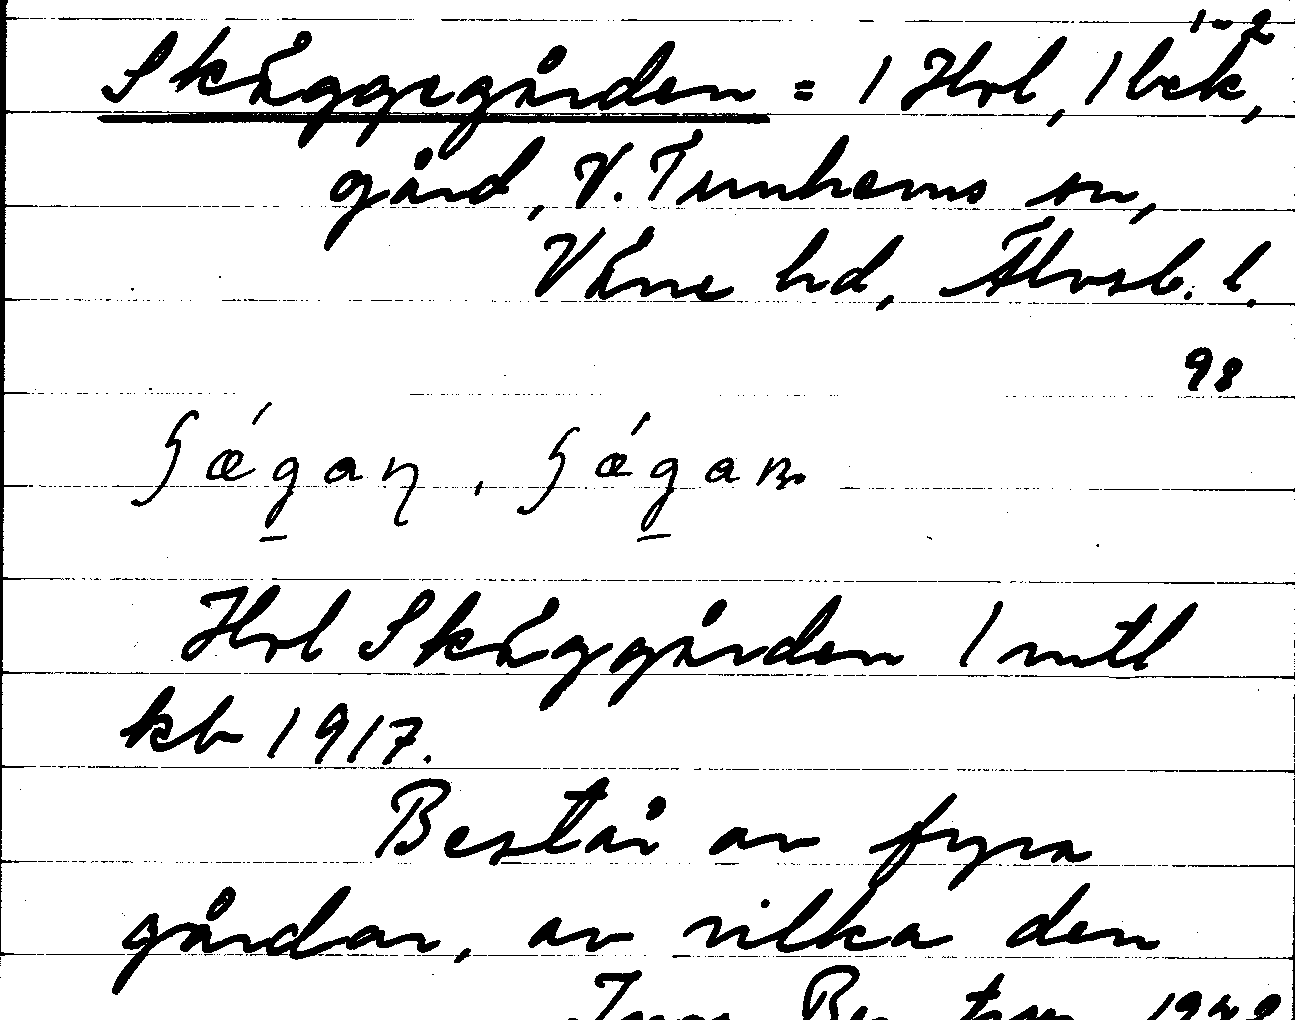 1-2
Skäggegården = 1 Hrl, 1 bek,
gård, V. Tunhems sn,
Väne hd, Älvsb. l.
98
Hrl Skäggården 1 mtl
kb 1917.
Består av fyra
gårdar, av vilka den